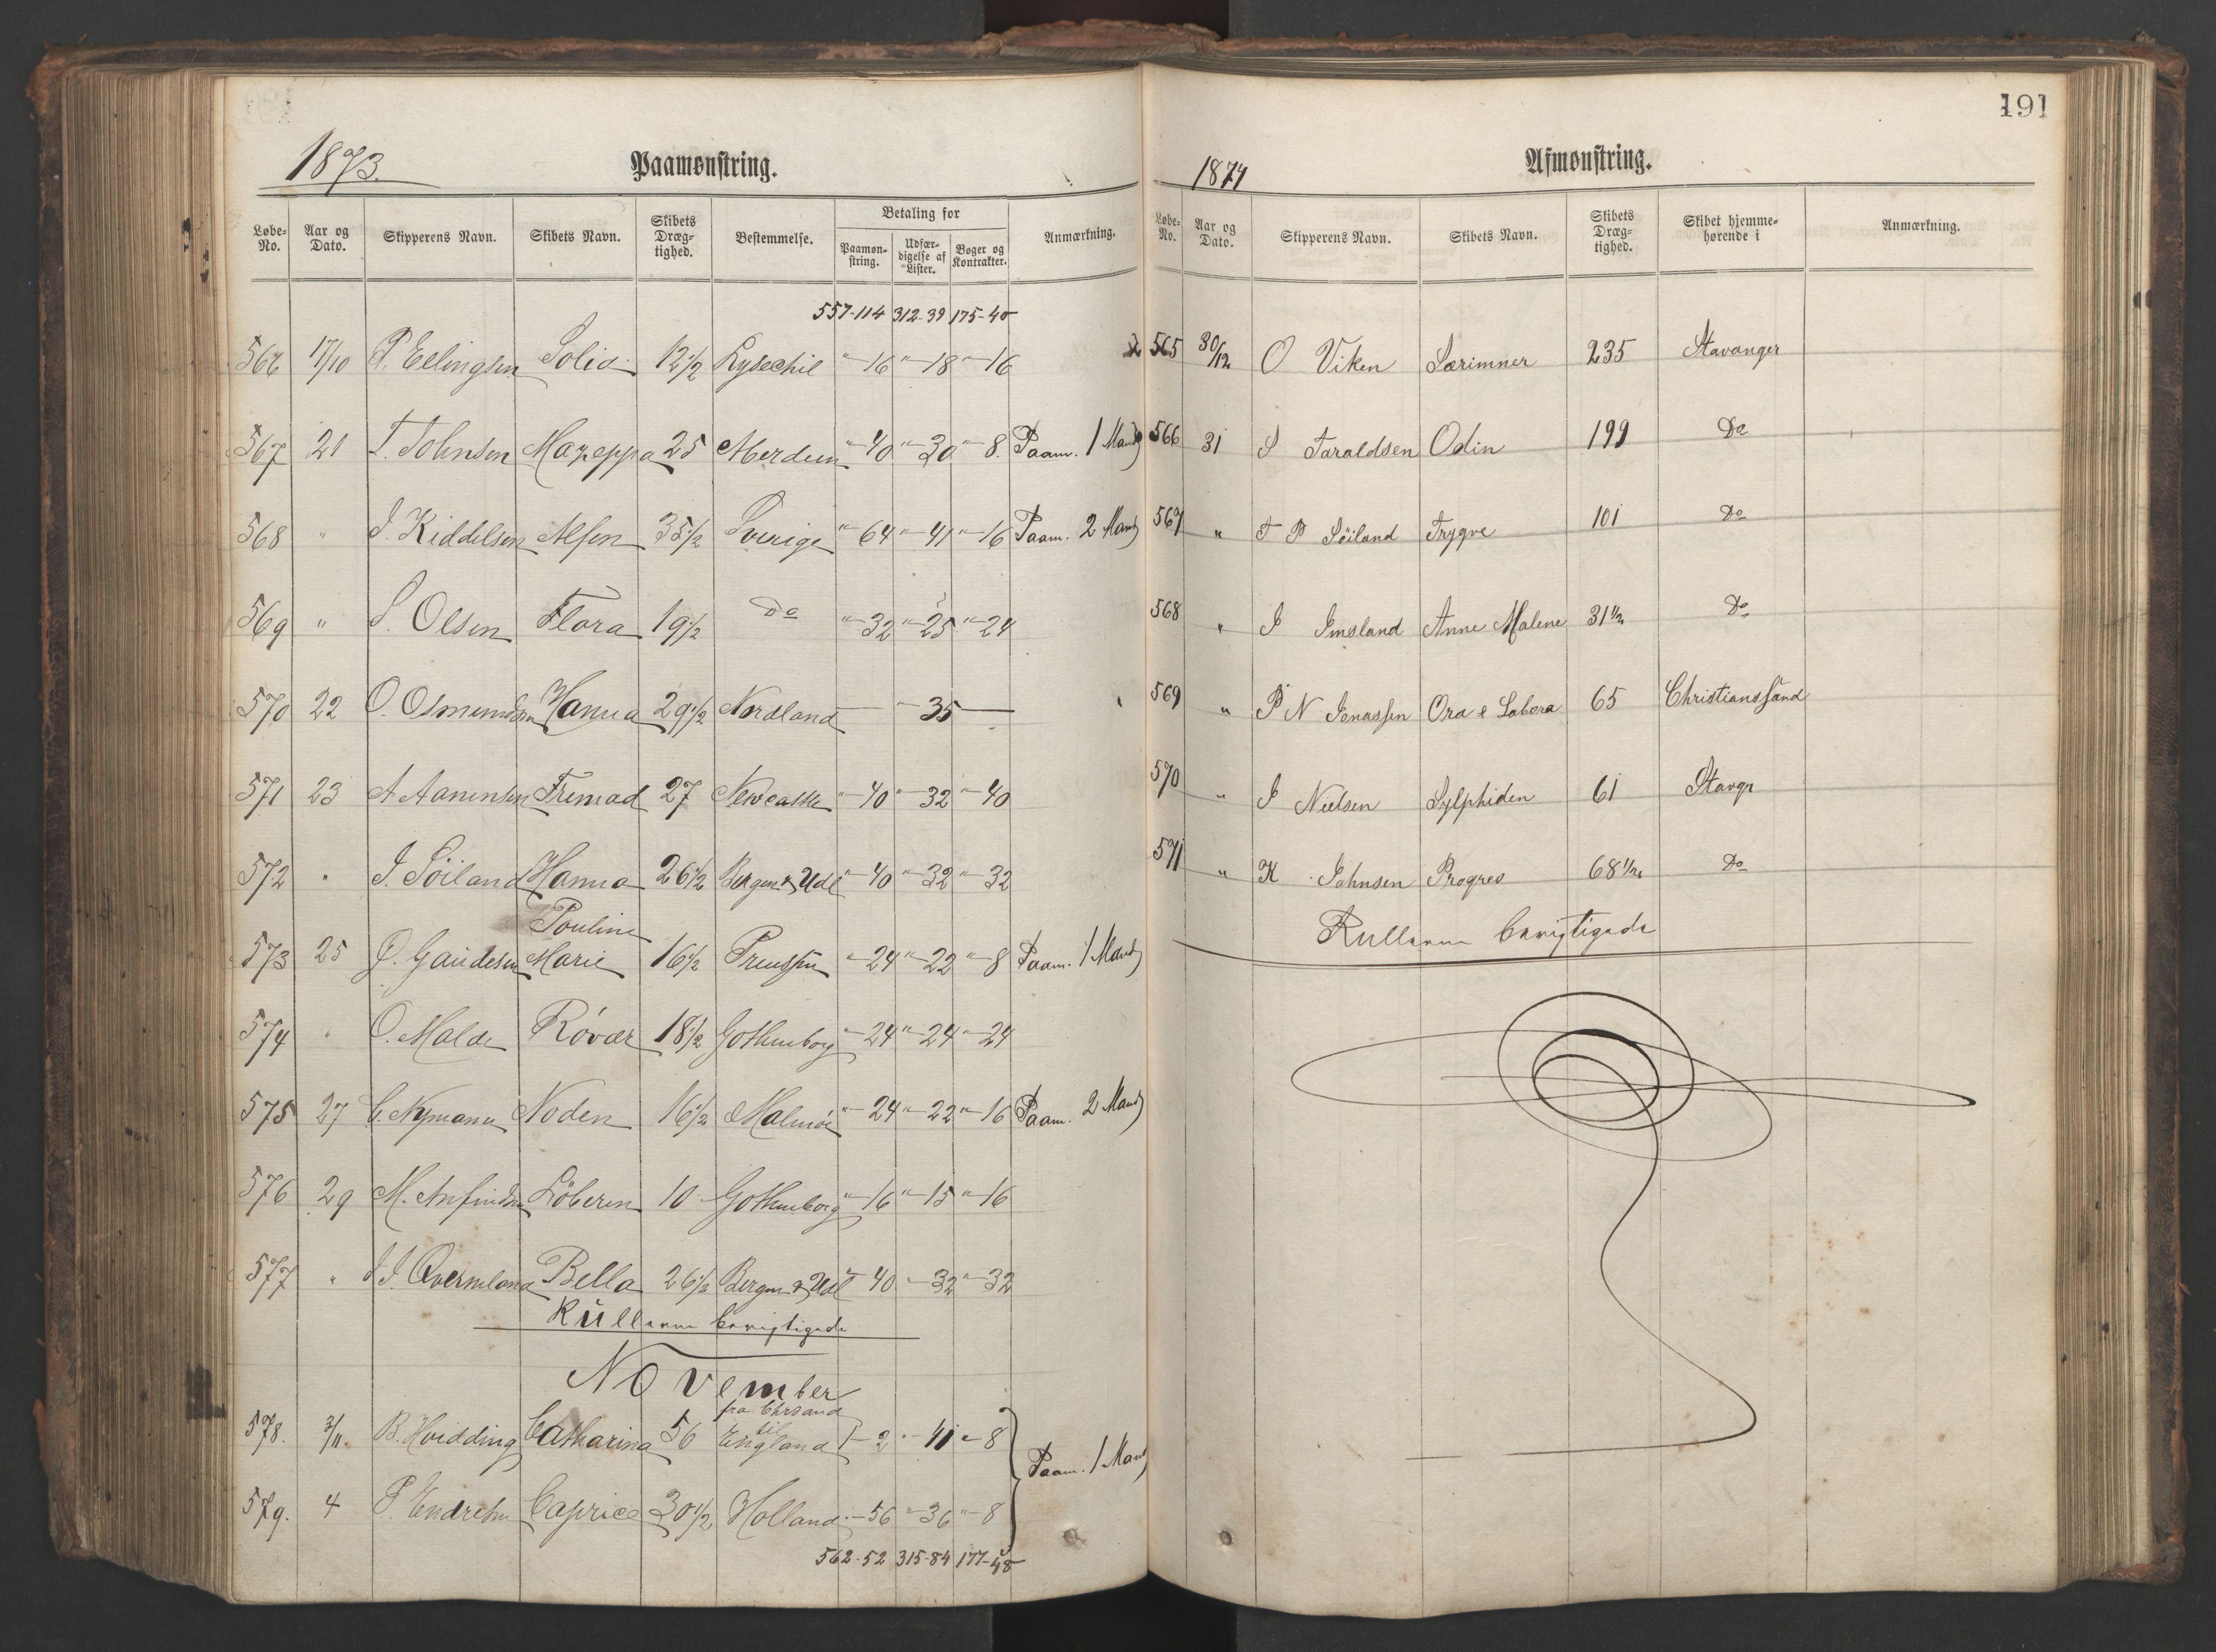 1873.
Paamønstring.
Løbe-No. Aar og Dato. Skipperens Navn. Skibets Navn. Skibets Dræg-tighed. Bestemmelse. Betaling for Paamøn-string. Udfær-digelse af Lister. Bøger og Kontrakter. Anmærkning.
557-114 312-39 175-40
566 17/10 P. Eelingsen Solid 12 1/2 Lysechil "-16 "-18 "-16
567 21 T. Johnsen Mazeppa 25 "-40 "-30 "-8. Paam. 1 Mand
568 " J. Kiddelsen Alfen 35 1/2 Sverige "-64 "-41 "-16 Paam. 2 Mand
569 " S. Olsen Flora 19 1/2 Do "-32 "-25 "-24
570 22 O. Osmundsen Hanna 29 1/2 Nordland — "-35 —
571 23 A Aanensen Fremad 27 Newcastle "-40 "-32 "-40
572 " J. Söiland Hanna 26 1/2 Bergen & Udl "-40 "-32 "-32
Pouline
573 25 Gaudesen Marie 16 1/2 Preussen "-24 "-22 "-8 Paam. 1 Mand
574 " O. Malde Röver 18 1/2 Gothenborg "-24 "-24 "-24
575 27 C. Nymann Noden 16 1/2 Malmöe "-24 "-22 "-16 Paam. 2 Mand
576 29 M. Anfindsen Löberen 10 Gothenborg "-16 "-15 "-16
577 " J. J. Qverneland Bella 26 1/2 Bergen & Udl "-40 "-32 "-32
Rullerne berigtigede
November
fra Chrsand
578. 3/11. B. Hvidding Catharina 56 til England 1-2 "-41 "-8
Paam. 1 Mand
579. 4 P. Endresen Caprice 30 1/2 Holland "-56 "-36 "-8
562-52 315-84 177-48
191
1874
Afmønstring.
Løbe-No. Aar og Dato. Skipperens Navn. Skibets Navn. Skibets Dræg-tighed. Skibet hjemme-hørende i Anmærkning.
565 30/12 O Viken Særimner 235 Stavanger
566 31 S Taraldsen Odin 199 Do
567 " T P Söiland Trygve 101 Do
568 " J Imsland Anne Malene 31 1/2 Do
569 " P N Jonassen Ora e Labora 65 Christianssand
570 " J Nielsen Sylphiden 61 Stavgr
571 " K Johnsen Progres 68 1/2 Do
Rullerne berigtigede